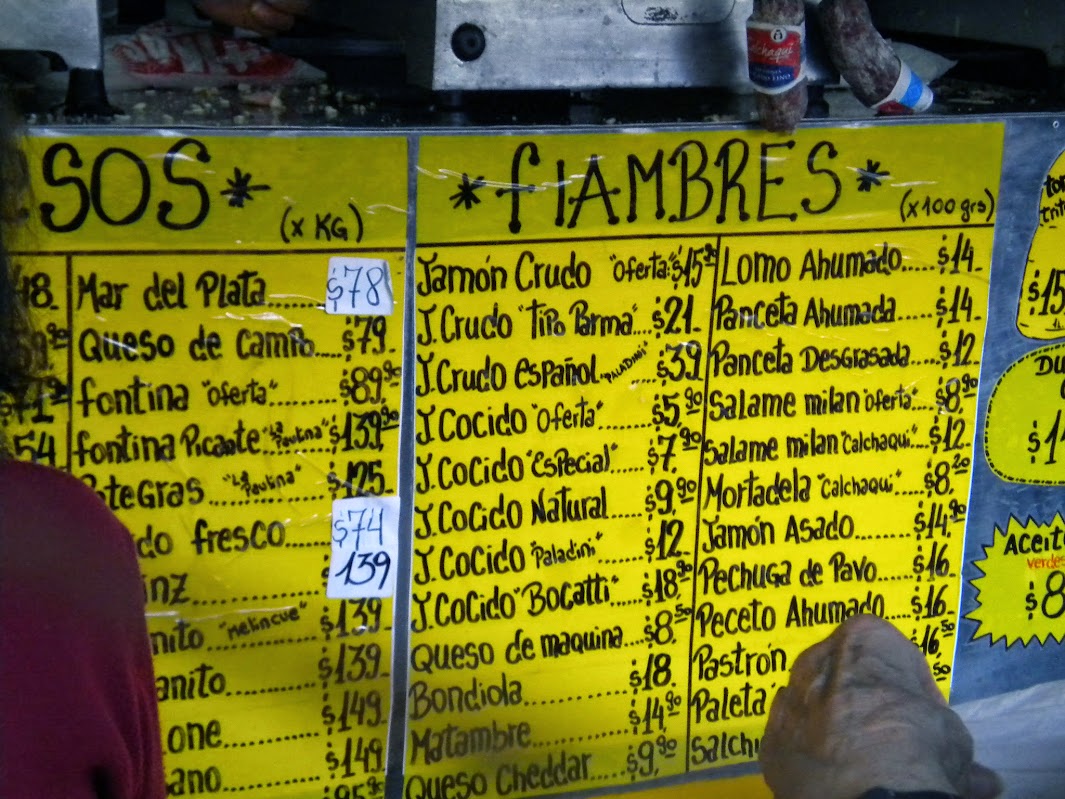 SOS*
(x KG)
18.
Mar del Plata.....$78
Queso de Campo....$79.
fontina "Oferta"....$89,90
54
fontina Picante "La Paulina" $139,90
tegras "La Paulina"....$125.
do fresco......$74
nz......139
nito "Melincué" $139.
anito.......$139
one.........$149.
ano.........$149
*fIAMBRES*
(x100grs)
Jamón Crudo "Oferta:"$15,90
J.Crudo "Tipo Parma"..$21.
J.Crudo español PALADINI...$39
J.Cocido "Oferta"......$5,90
J.Cocido "especial".....$7,90
J.Cocido Natural......$9,90
J.Cocido "Paladini".....$12.
J.Cocido "Bocatti"......$18,90
Queso de maquina...$8,50
Bondiola...........$18.
Matambre.........$14,90
Queso Cheddar....$9,90
Lomo Ahumado.....$14.
Panceta Ahumada....$14.
Panceta Desgrasada....$12.
Salame milan "oferta"....$8,90
Salame milan "Calchaqui"..$12.
Mortadela "Calchaqui"....$8,20
Jamón Asado......$14,90
Pechuga de Pavo....$16.
Peceto Ahumado....$16.
Pastrón
16,50
Paleta
Salchi
$15
Du
$1
Aceit
verdes
$8